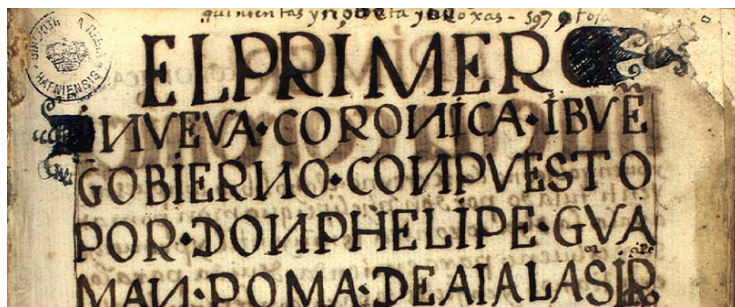 quinientas y oxas - 597
HAFNIENSIS
EL PRIMER
INVEVA·CORONICA·IBVĒ
GOBIERNO·CONPVESTO
POR·DON PHELIPE·GVA
MAN·POMA·DE AIALA